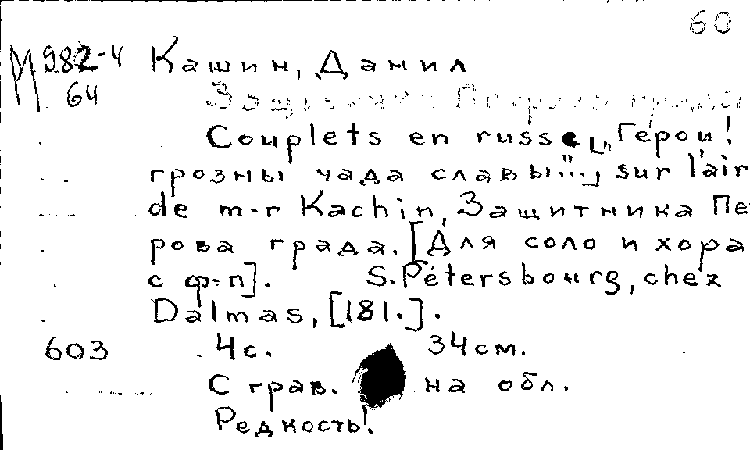 60
М 982-4 Кашин, Данил
64 Защитника Петрова града
Couplets en russe „Герои!
грозны чада славы!!!..." sur l'air
de m-r Kachin, Защитника Пет
рова града. [Для соло и хора
с ф-п]. S. Pétersbourg, chez
Dalmas, [181.].
603 4с. 34см.
С грав. на обл.
Редкость!